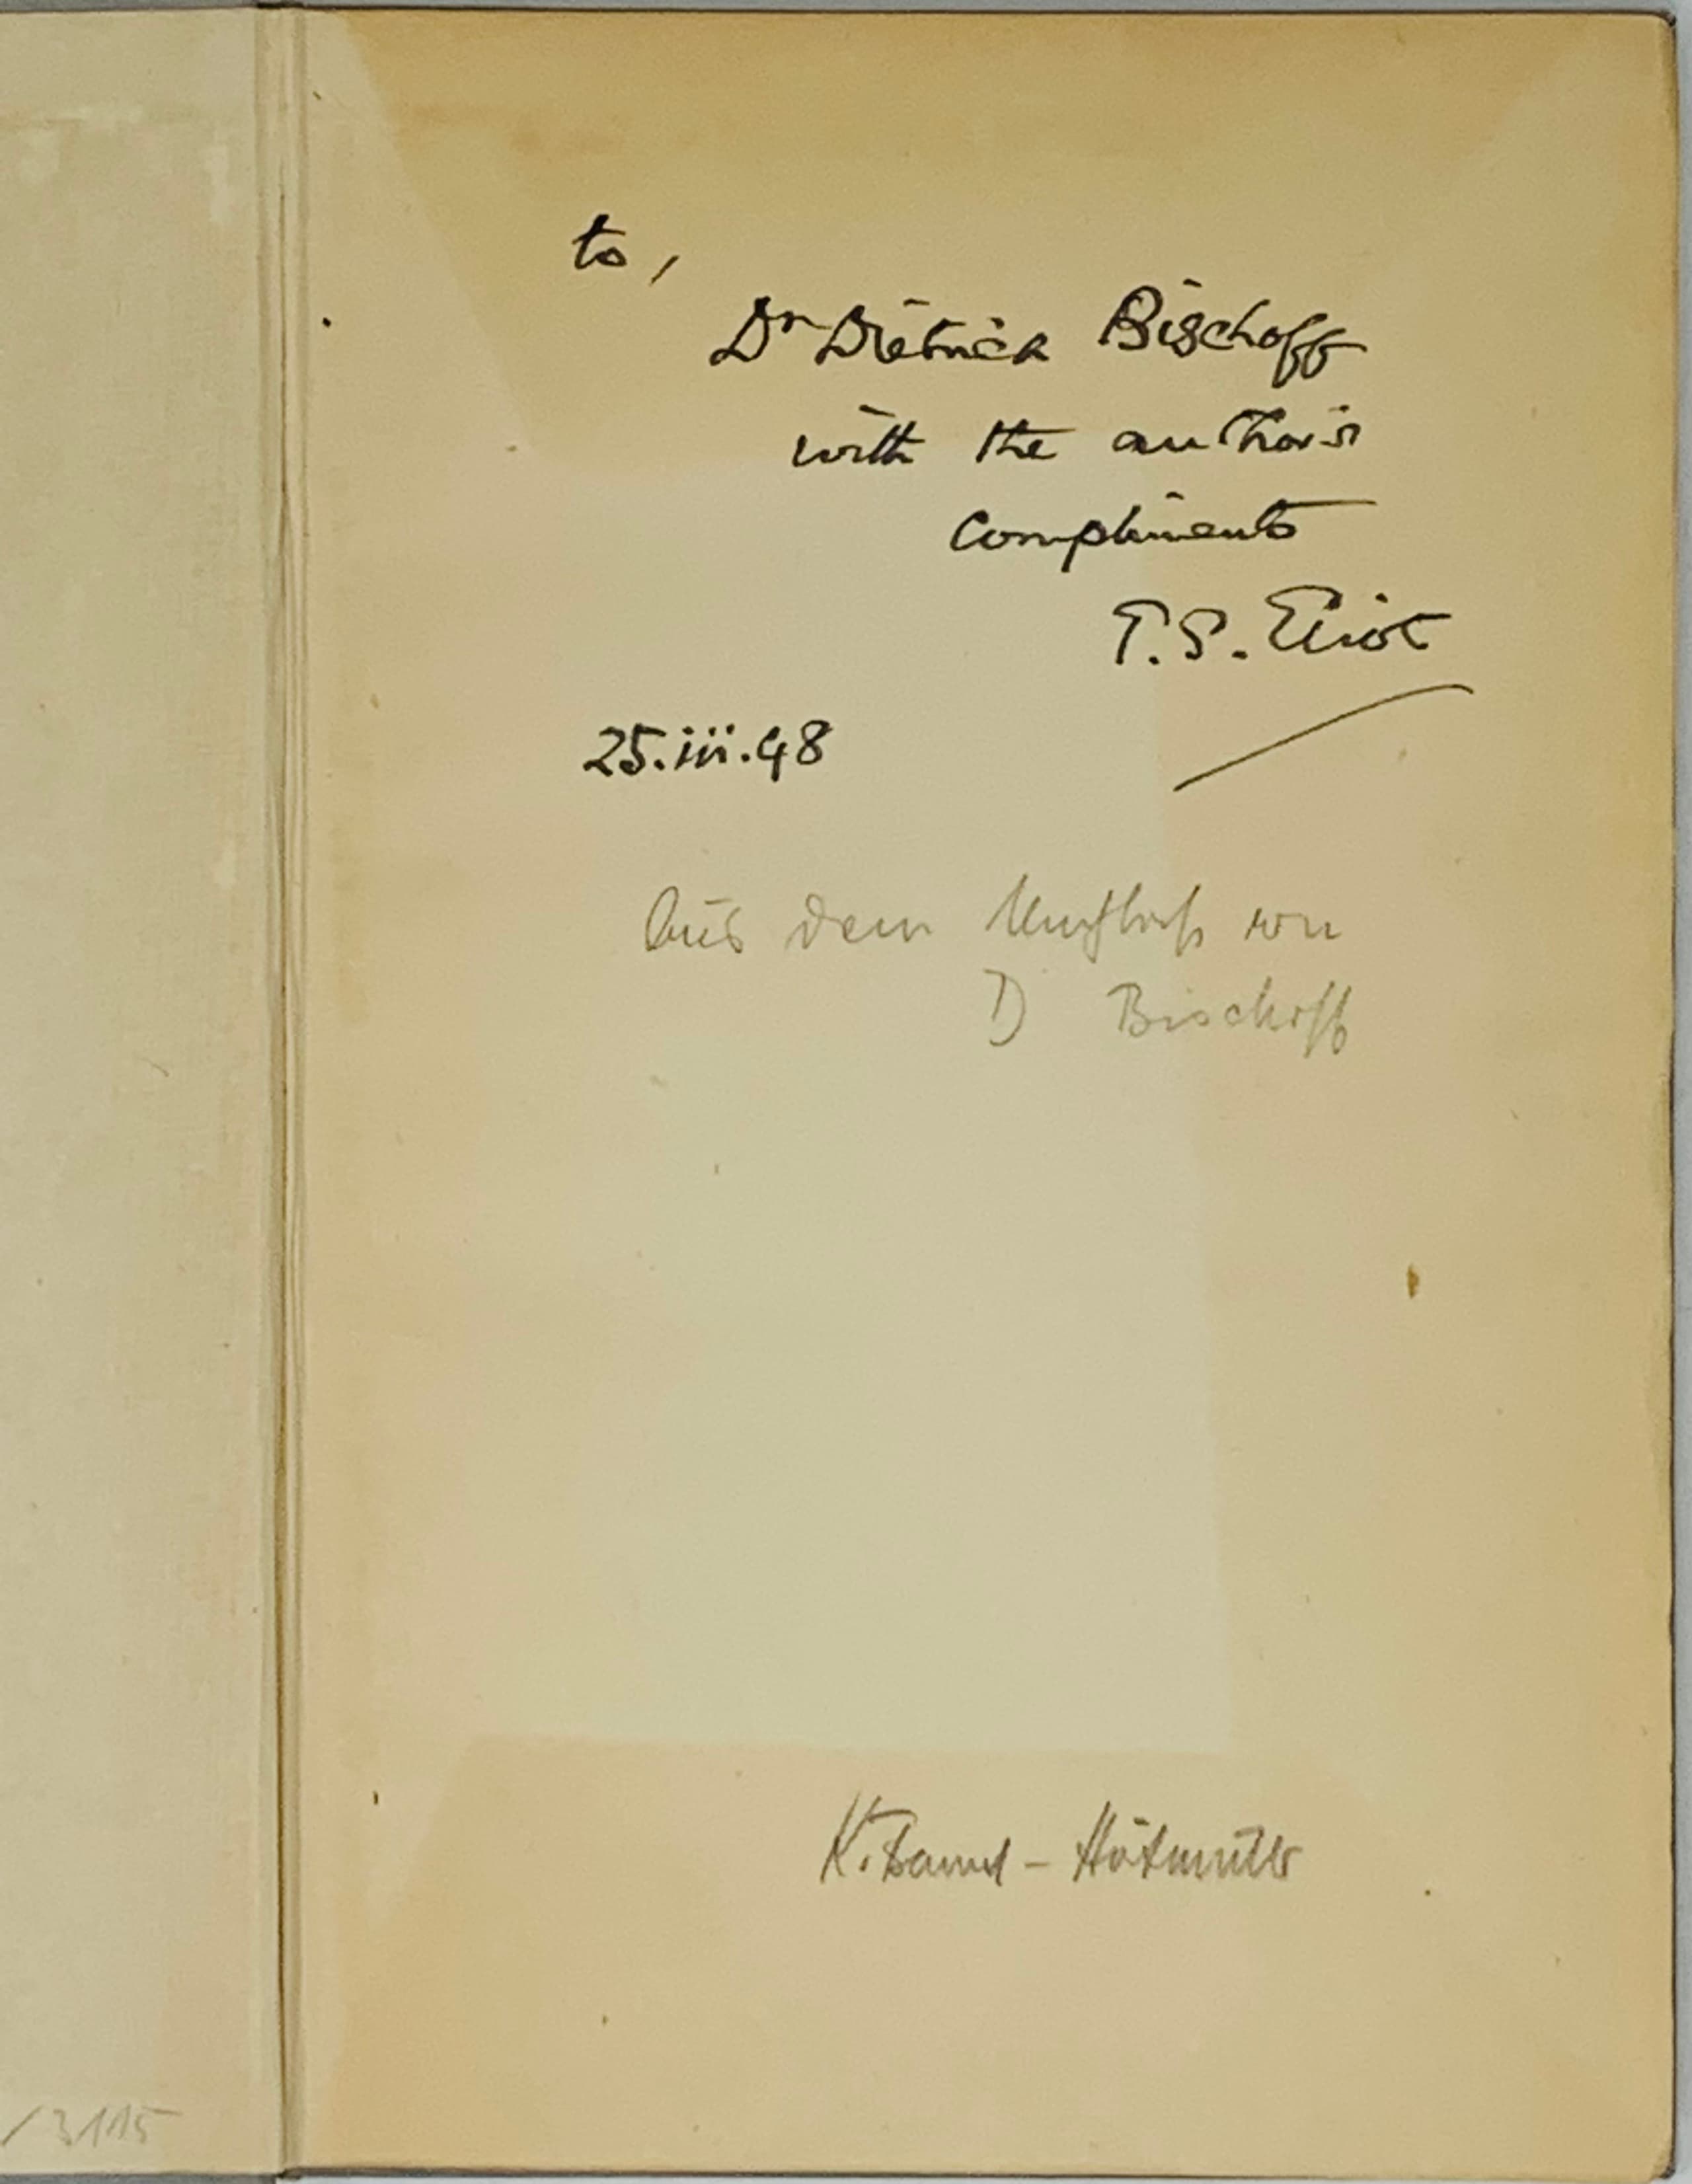 to,
Dr Dietrich Bischoff
with the author's
compliments
T. S. Eliot
25.iii.48
Aus dem Nachlaß von
D Bischoff
K.
/3115